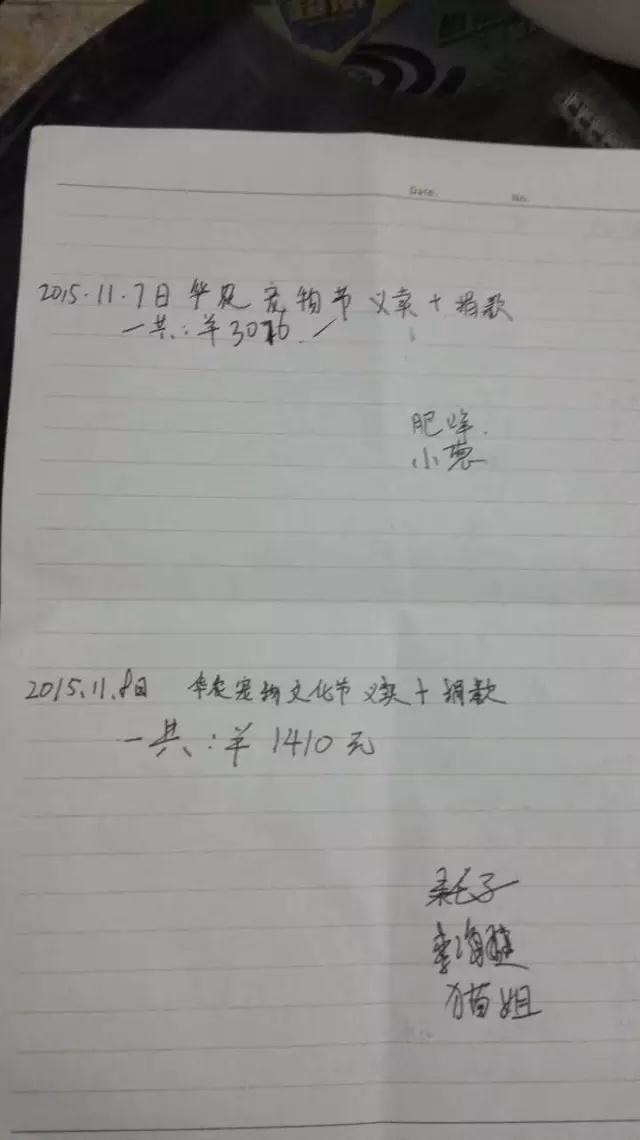 Date.
No.
2015.11.7日 华农宠物节 义卖+捐款
一共:￥3076.
肥峰.
小葱
2015.11.8日 华农宠物文化节 义卖+捐款
一共:￥1410元
耗子
猫姐